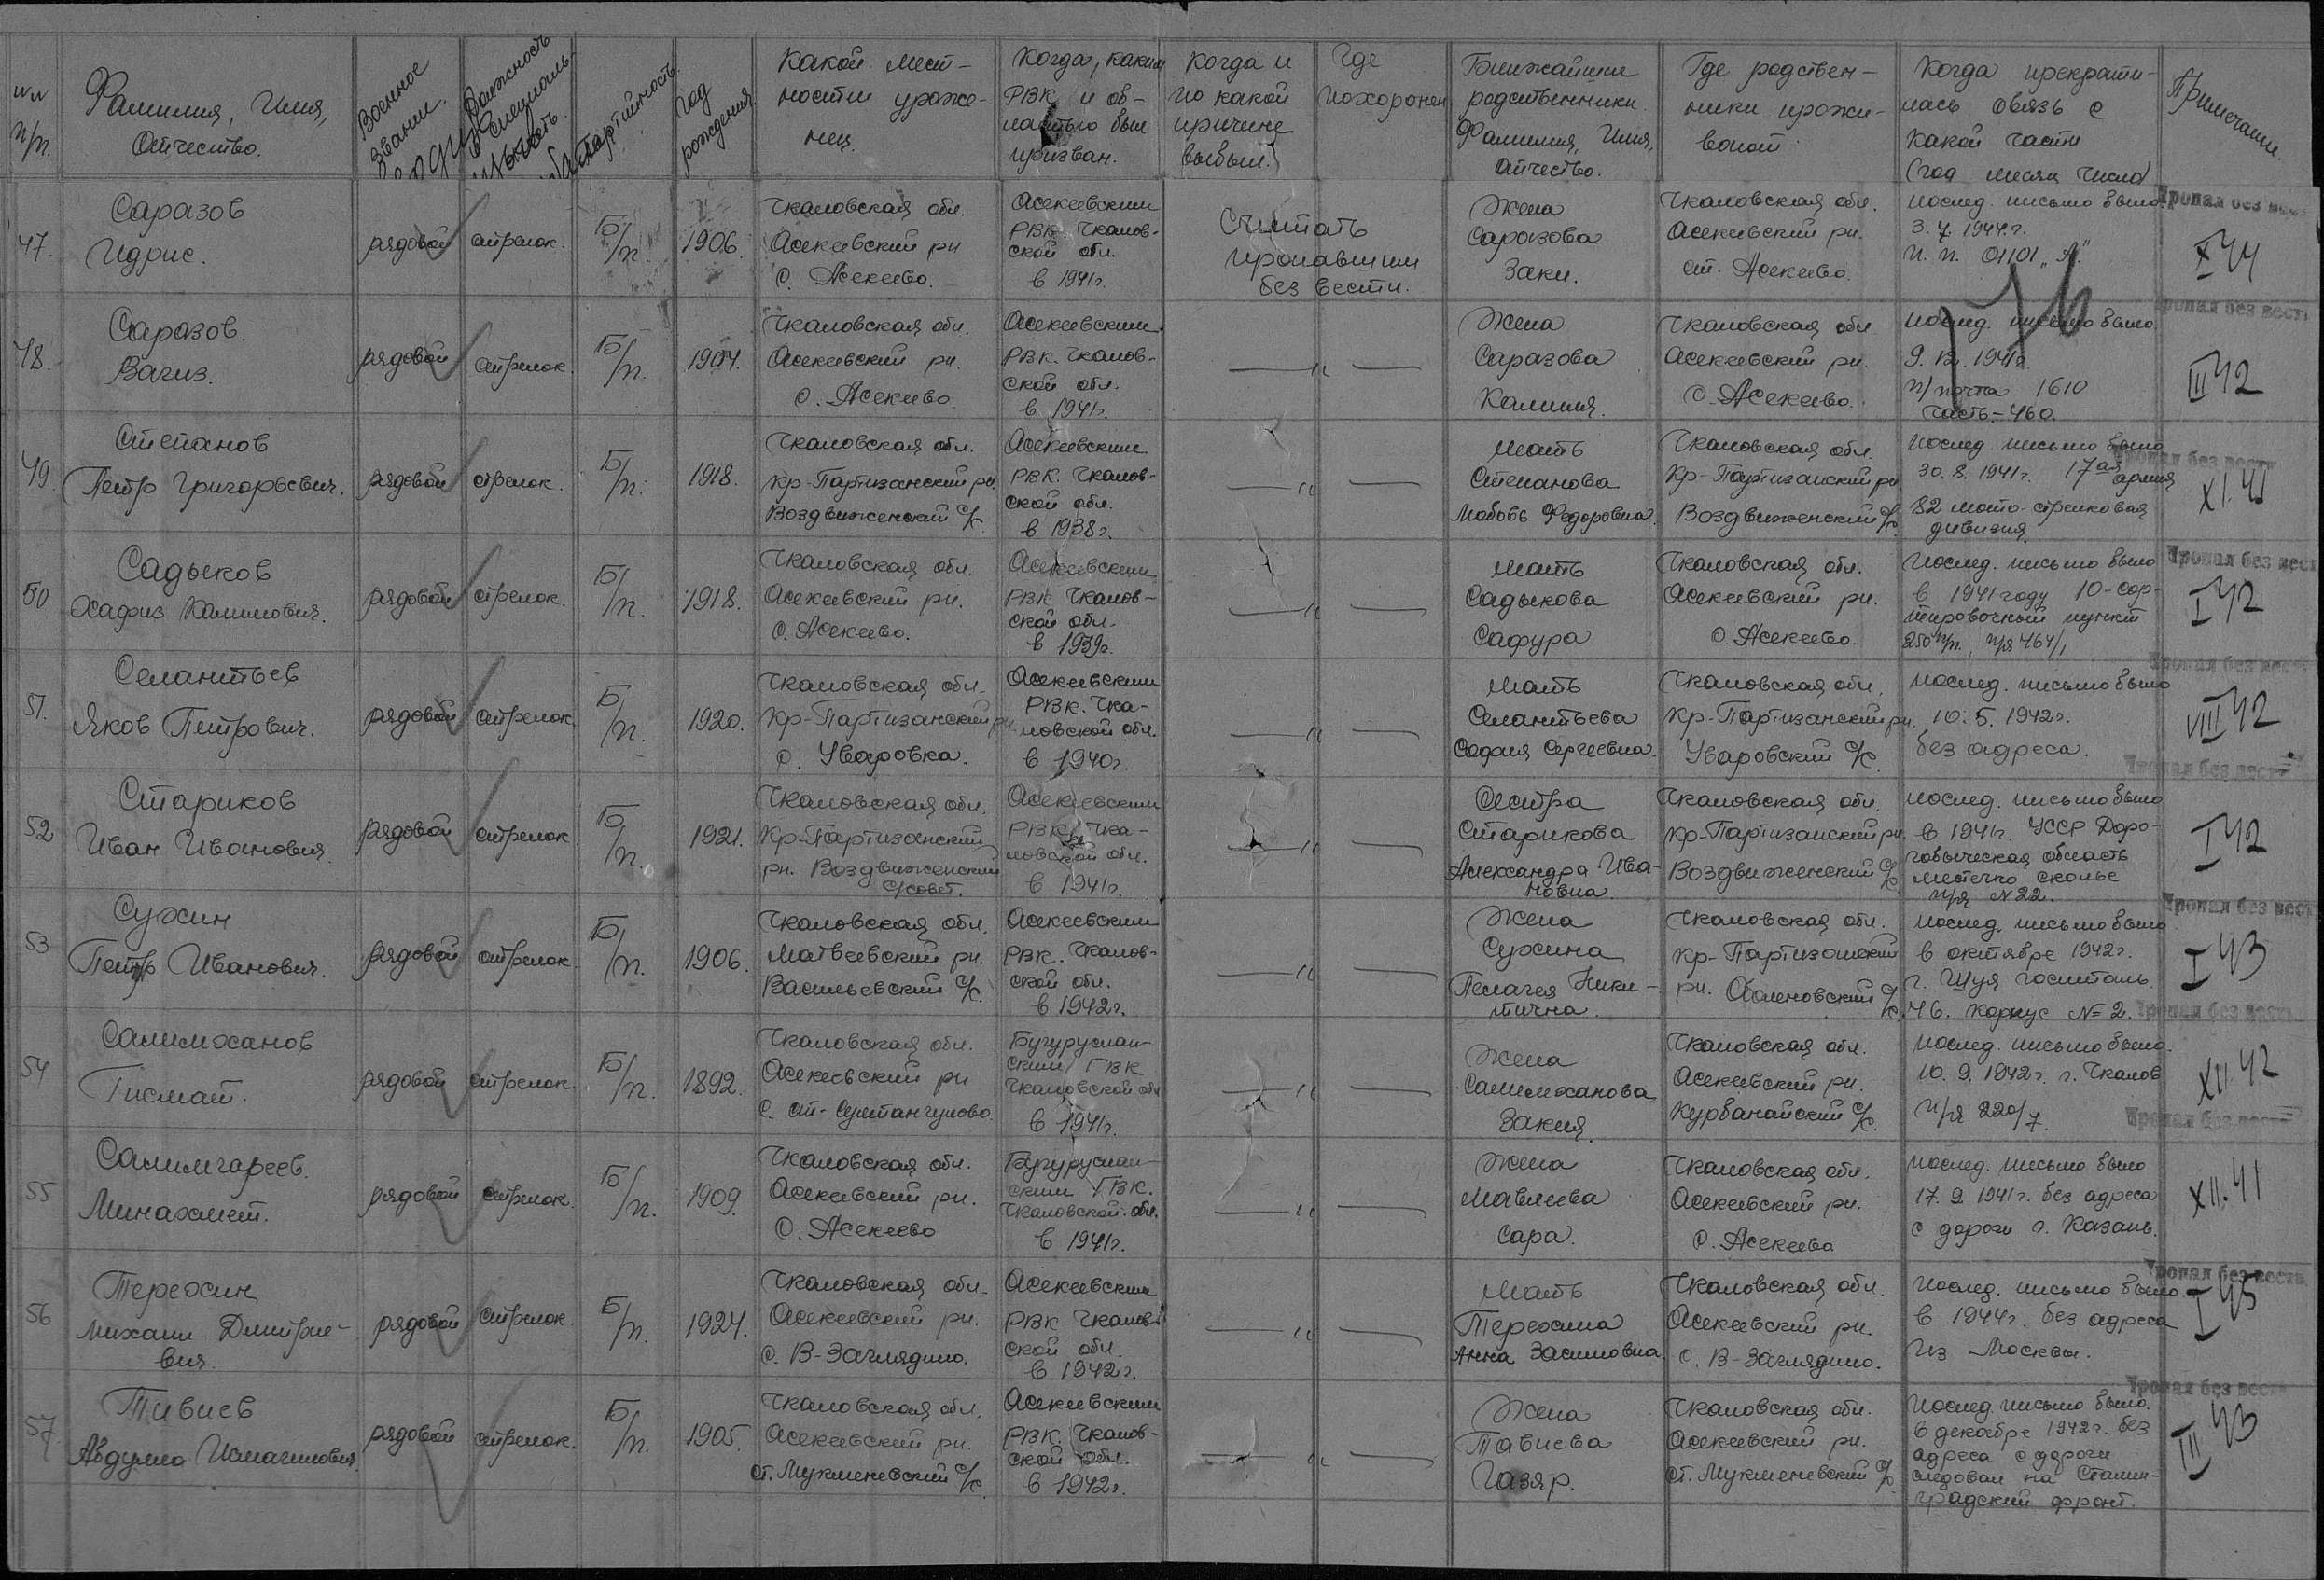 NN п/п.
Фамилия, Имя, Отчество.
Военное звание.
Должность и специальность.
Партийность.
Год рождения.
Какой мест-
ности уроже-
нец.
Когда, каким
РВК и об-
ластью был
призван.
Когда и
по какой
причине
выбыл.
Где
похоронен
Ближайшие
родственники.
Фамилия, Имя,
Отчество.
Где родствен-
ники прожи-
вают
Когда прекрати-
лась связь с
какой части
(год месяц число)
Примечание.
47.
Саразов
Идрис.
рядовой
стрелок.
Б/п.
1906.
Чкаловская обл.
Асекеевский рн
с. Асекеево.
Асекеевским
РВК. Чкалов-
ской обл.
в 1941г.
Считать
пропавшим
без вести.
Жена
Саразова
Заки.
Чкаловская обл.
Асекеевский рн.
ст. Асекеево.
послед. письмо было
3. 7. 1944г.
п. п. 01101 „А"
Пропал без вести
X 44
48.
Саразов.
Вагиз.
рядовой
стрелок.
Б/п.
1904.
Чкаловская обл.
Асекеевский рн.
с. Асекеево.
Асекеевским
РВК. Чкалов-
ской обл.
в 1941г.
— " —
Жена
Саразова
Калимя.
Чкаловская обл
Асекеевский рн.
с. Асекеево.
послед. письмо было
9. 12. 1941г.
п/почта 1610
часть-460.
Пропал без вести
III 42
49.
Степанов
Петр Григорьевич.
рядовой
стрелок.
Б/п.
1918.
Чкаловская обл.
Кр-Партизанский рн.
Воздвиженский с/с
Асекеевским
РВК. Чкалов-
ской обл.
в 1938г.
— " —
Мать
Степанова
Любовь Федоровна.
Чкаловская обл.
Кр-Партизанский рн
Воздвиженский с/с.
послед. письмо было
30. 8. 1941г. 17ая армия
82 мото-стрелковая
дивизия.
Пропал без вести
XI. 41
50
Садыков
Хафиз Калимович.
рядовой
стрелок.
Б/п.
1918.
Чкаловская обл.
Асекеевский рн.
с. Асекеево.
Асекеевским
РВК Чкалов-
ской обл.
в 1939г.
— " —
Мать
Садыкова
Сафура
Чкаловская обл.
Асекеевский рн.
с. Асекеево.
послед. письмо было
в 1941 году 10-сор-
тировочный пункт
250 п/п. п/я 464/1
Пропал без вести
I 42
51.
Селантьев
Яков Петрович.
рядовой
стрелок.
Б/п.
1920.
Чкаловская обл.
Кр-Партизанский рн
с. Уваровка.
Асекеевским
РВК. Чка-
ловской обл.
в 1940г.
— " —
Мать
Селантьева
София Сергеевна.
Чкаловская обл.
Кр-Партизанский рн.
Уваровский с/с
послед. письмо было
10. 5. 1942г.
без адреса.
Пропал без вести
VIII 42
52
Стариков
Иван Иванович
рядовой
стрелок
Б/п.
1921.
Чкаловская обл.
Кр-Партизанский
рн. Воздвиженский
с/совет.
Асекеевским
РВК. Чка-
ловской обл.
в 1941г.
— " —
Сестра
Старикова
Александра Ива-
новна
Чкаловская обл.
Кр-Партизанский рн.
Воздвиженский с/с
послед. письмо было
в 1941г. УССР Доро-
гобыческая область
местечко сколье
п/я N 22.
Пропал без вести
I 42
53
Сухин
Петр Иванович.
рядовой
стрелок
Б/п.
1906.
Чкаловская обл.
Матвеевский рн.
Васильевский с/с.
Асекеевским
РВК. Чкалов-
ской обл.
в 1942г.
— " —
Жена
Сухина
Пелагея Ники-
тична.
Чкаловская обл.
Кр-Партизанский
рн. Баленовский с/с.
послед. письмо было
в октябре 1942г.
г. Шуя госпиталь
46. корпус N=2.
Пропал без вести
I 43
54
Салимоханов
Гисмат.
рядовой
стрелок.
Б/п.
1892.
Чкаловская обл.
Асекеевский рн
с. ст-Султангулово.
Бугуруслан-
ским ГВК
Чкаловской обл
в 1941г.
— " —
Жена
Салимоханова
Закия.
Чкаловская обл.
Асекеевский рн.
Курбанайский с/с.
послед. письмо было.
10. 9. 1942г. г. Чкалов
п/я 220/7.
Пропал без вести
XII 42
55
Салимгареев.
Минахмет.
рядовой
стрелок.
Б/п.
1909.
Чкаловская обл.
Асекеевский рн.
с. Асекеево
Бугуруслан-
ским ГВК.
Чкаловской обл.
в 1941г.
— " —
Жена
Мавлеева
Сара.
Чкаловская обл.
Асекеевский рн.
с. Асекеева
послед. письмо было
17. 9. 1941г. без адреса
с дороги г. Казань.
Пропал без вести
XII. 41
56
Терехин
Михаил Дмитрие-
вич.
рядовой
стрелок.
Б/п.
1924.
Чкаловская обл.
Асекеевский рн.
с. В-Заглядино.
Асекеевским
РВК Чкалов-
ской обл.
в 1942г.
— " —
Мать
Терехина
Анна Засимовна.
Чкаловская обл.
Асекеевский рн.
с. В-Заглядино.
послед. письмо было.
в 1944г. без адреса
из Москвы.
Пропал без вести
I 45
57.
Тивиев
Абдулла Исмагилович.
рядовой
стрелок.
Б/п.
1905.
Чкаловская обл.
Асекеевский рн.
ст. Мукменевский с/с
Асекеевским
РВК. Чкалов-
ской обл.
в 1942г.
— " —
Жена
Тавиева
Газяр.
Чкаловская обл.
Асекеевский рн.
ст. Мукменевский с/с
послед. письмо было.
в декабре 1942г. без
адреса с дороги
следовал на Сталин-
градский фронт.
Пропал без вести
III 43